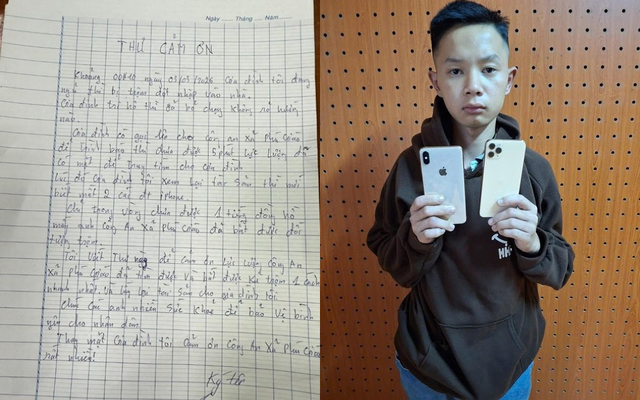 Ngày Tháng Năm
THƯ CẢM ƠN
Khoảng 00h10 ngày 03/03/2026 Gia đình tôi đang
ngủ thì bị trộm đột nhập vào nhà.
Gia đình tôi hô thì có kẻ chạy không rõ hướng
nào.
Gia đình có gọi lên cho Công An Xã Phú Cường
để trình báo thì chưa được 5 phút lực lượng đã
Có mặt để trung tâm cho Gia đình
lúc đó Gia đình tôi xem lại tài sản thì mới
biết mất 2 cái đt iphone
Chỉ trong vòng chưa được 1 tiếng đồng hồ
Công An Xã Phú Cường đã bắt được đối
tượng trộm.
Tôi viết Thư này để Cảm ơn lực lượng Công An
Xã Phú Cường đã tìm được và bắt được kẻ trộm 1 cách
nhanh nhất và lấy lại tài sản cho gia đình tôi
Chúc Các anh nhiều Sức khoẻ để bảo vệ bình
yên cho nhân dân.
Thay mặt Gia đình tôi Cảm ơn Công An Xã Phú Cường
rất nhiều!